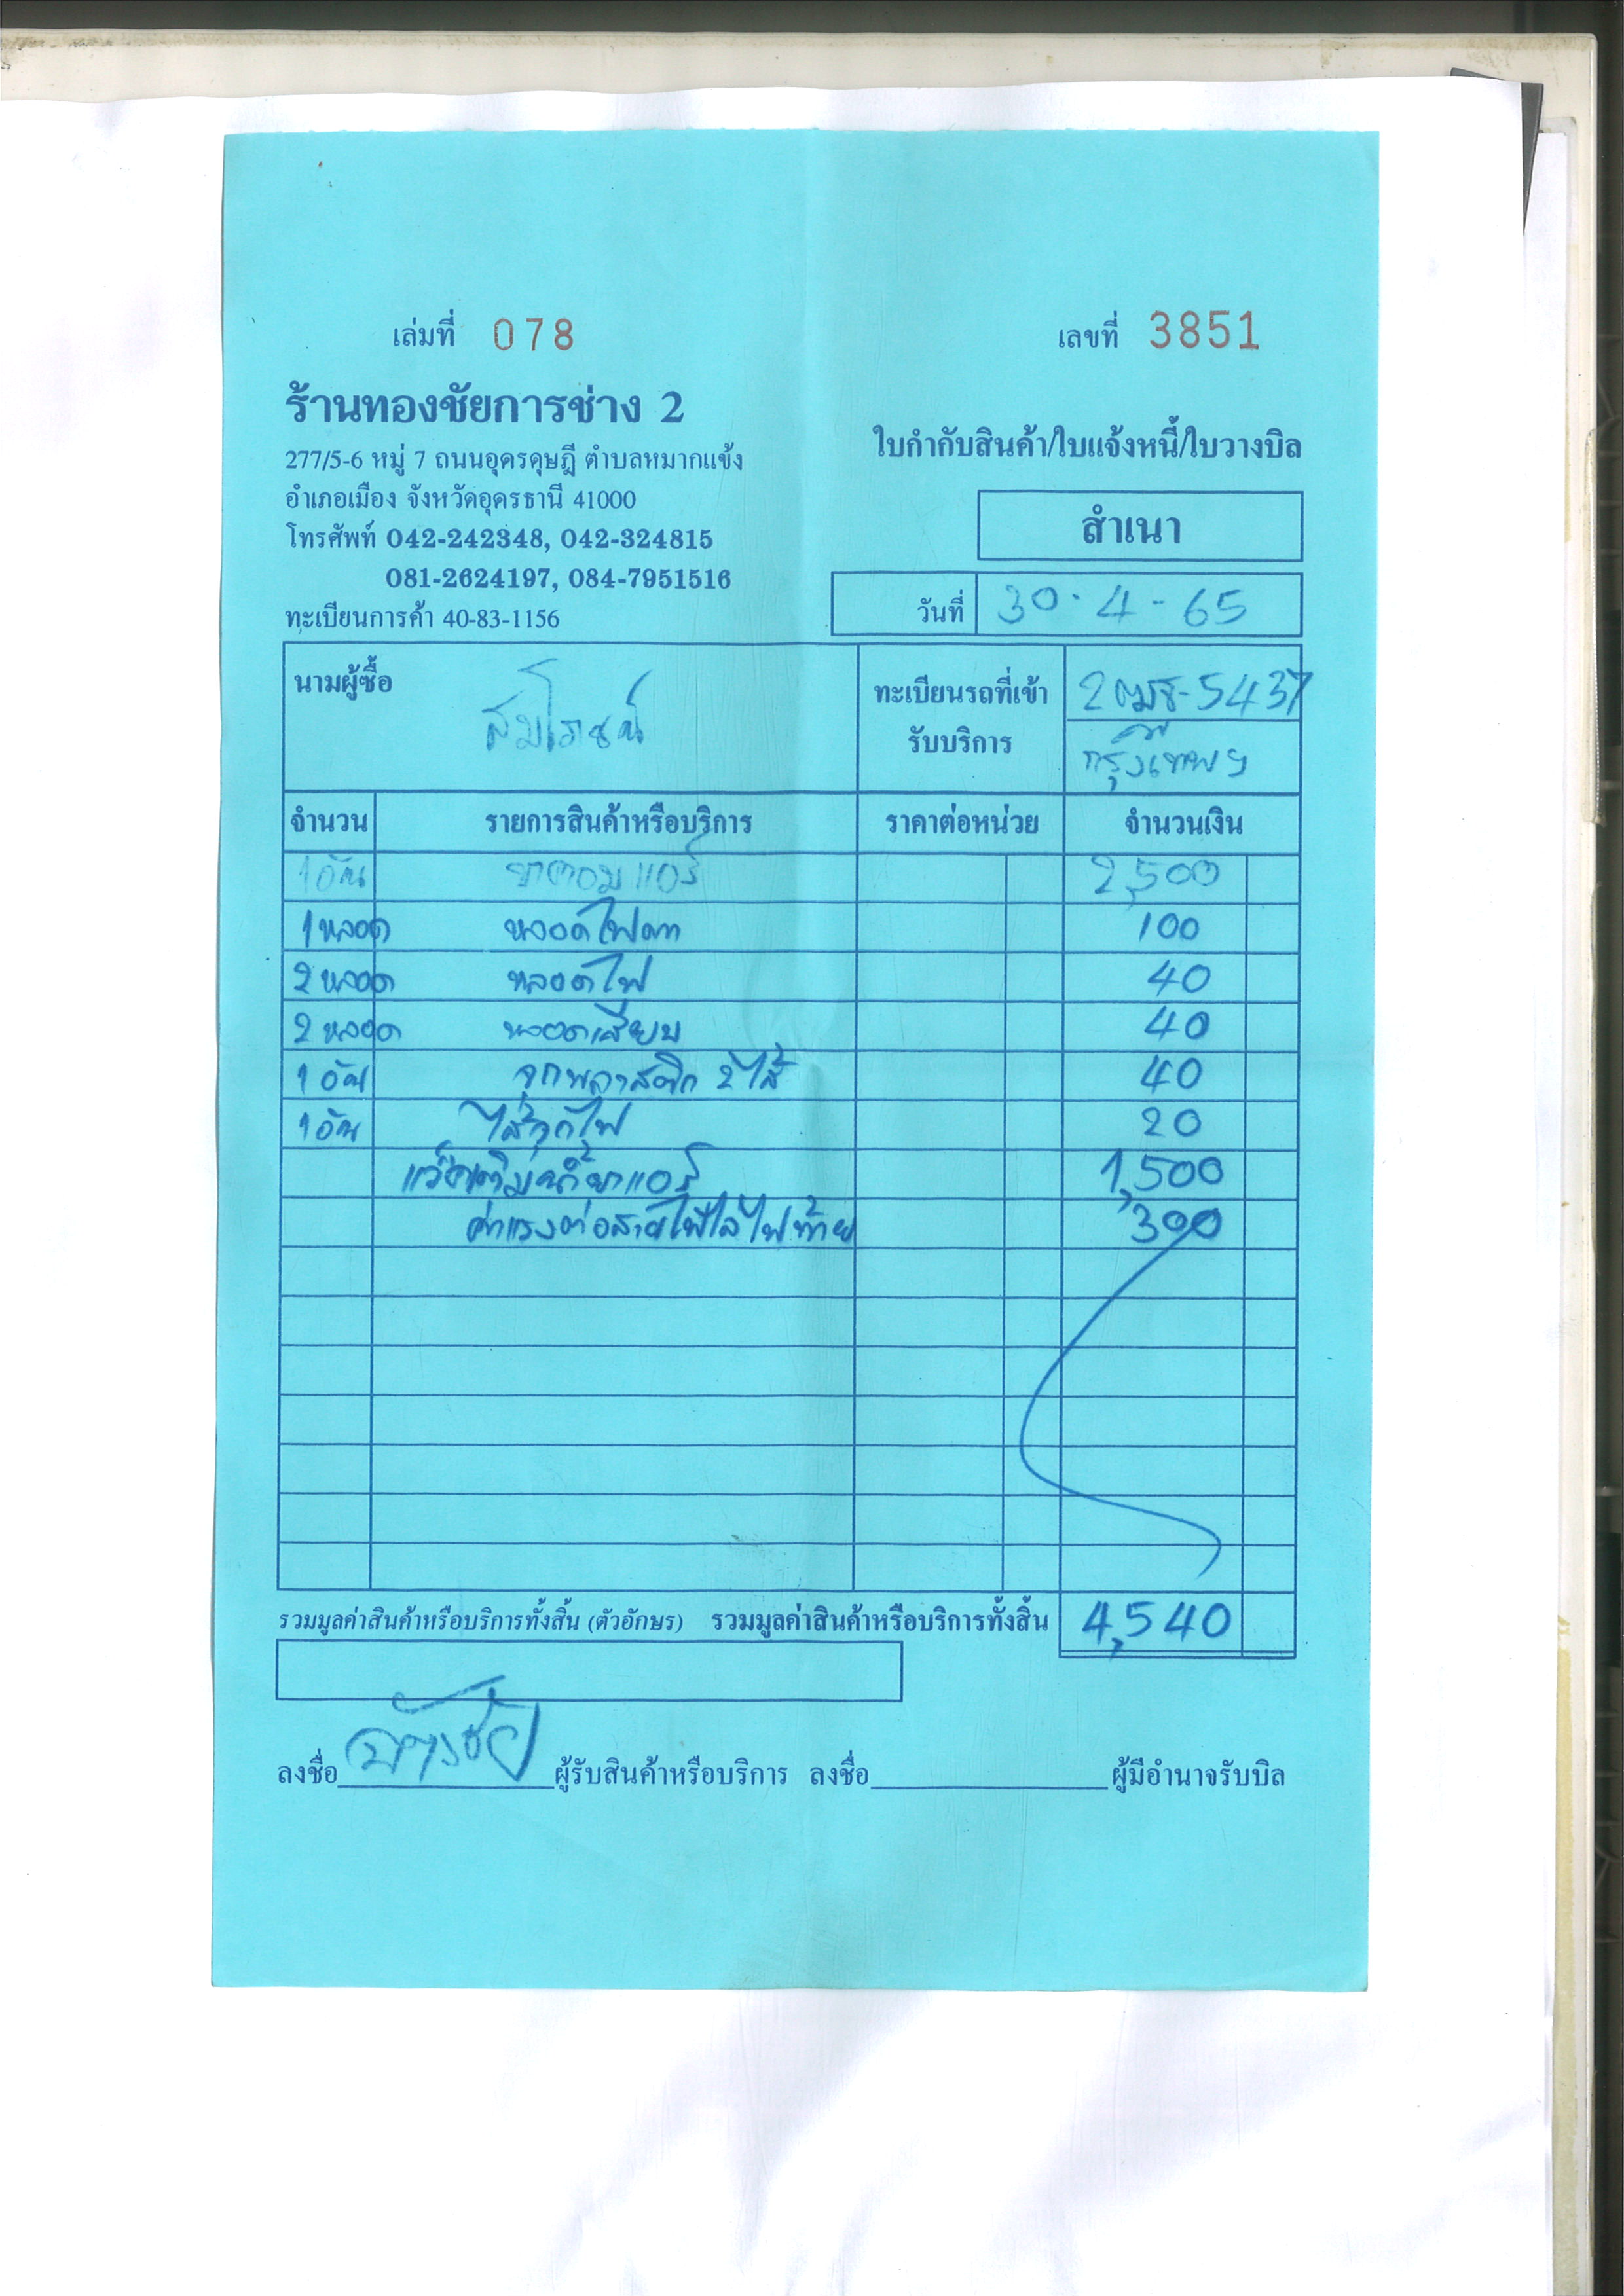 เล่มที่ 078 เลขที่ 3851
ร้านทองชัยการช่าง 2
277/5-6 หมู่ 7 ถนนอุดรดุษฎี ตำบลหมากแข้ง
อำเภอเมือง จังหวัดอุดรธานี 41000
โทรศัพท์ 042-242348, 042-324815
081-2624197, 084-7951516
ทะเบียนการค้า 40-83-1156
ใบกำกับสินค้า/ใบแจ้งหนี้/ใบวางบิล
สำเนา
วันที่ 30-4-65
นามผู้ซื้อ สมโภชน์
ทะเบียนรถที่เข้า
รับบริการ
5437
กรุงเทพฯ
จำนวน รายการสินค้าหรือบริการ ราคาต่อหน่วย จำนวนเงิน
1 อัน ขาคอมแอร์ 2,500
1 หลอด หลอดไฟตา 100
2 หลอด หลอดไฟ 40
2 หลอด หลอดเสียบ 40
1 อัน จุกพลาสติก 2 ไส้ 40
1 อัน ไส้จุกไฟ 20
แว๊คเติมน้ำยาแอร์ 1,500
ค่าแรงต่อสายไฟใส่ไฟท้าย 300
รวมมูลค่าสินค้าหรือบริการทั้งสิ้น (ตัวอักษร) รวมมูลค่าสินค้าหรือบริการทั้งสิ้น 4,540
ลงชื่อ ผู้รับสินค้าหรือบริการ ลงชื่อ ผู้มีอำนาจรับบิล